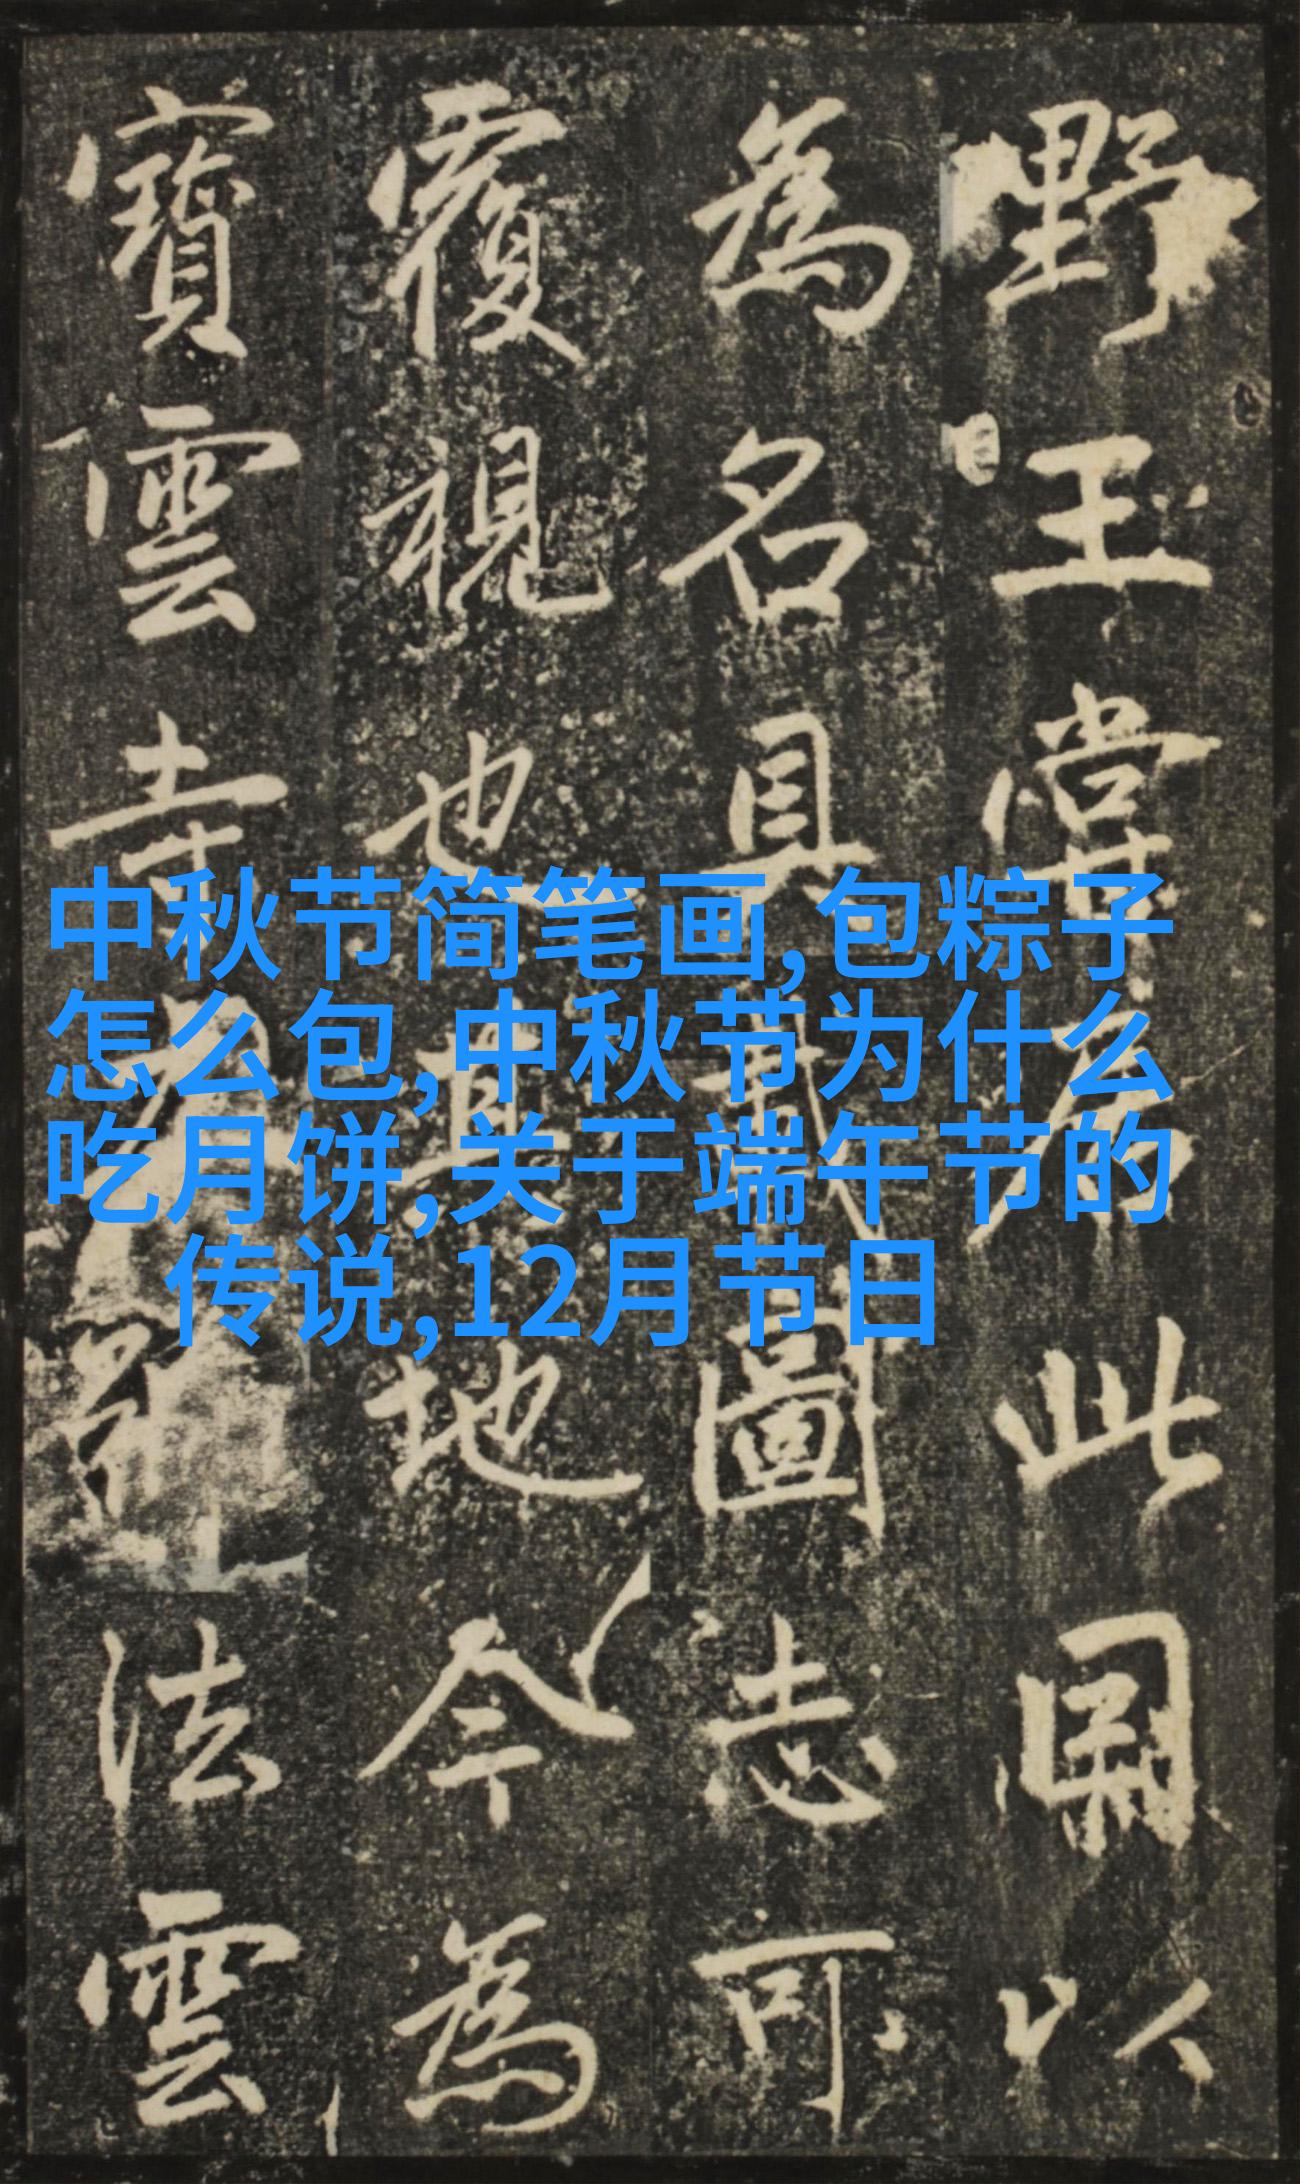 野王嘗居此因以
為名具載圖志可
覆視也其地今為
寶雲寺 法雲
中秋节简笔画,包粽子
怎么包,中秋节为什么
吃月饼,关于端午节的
传说,12月节日